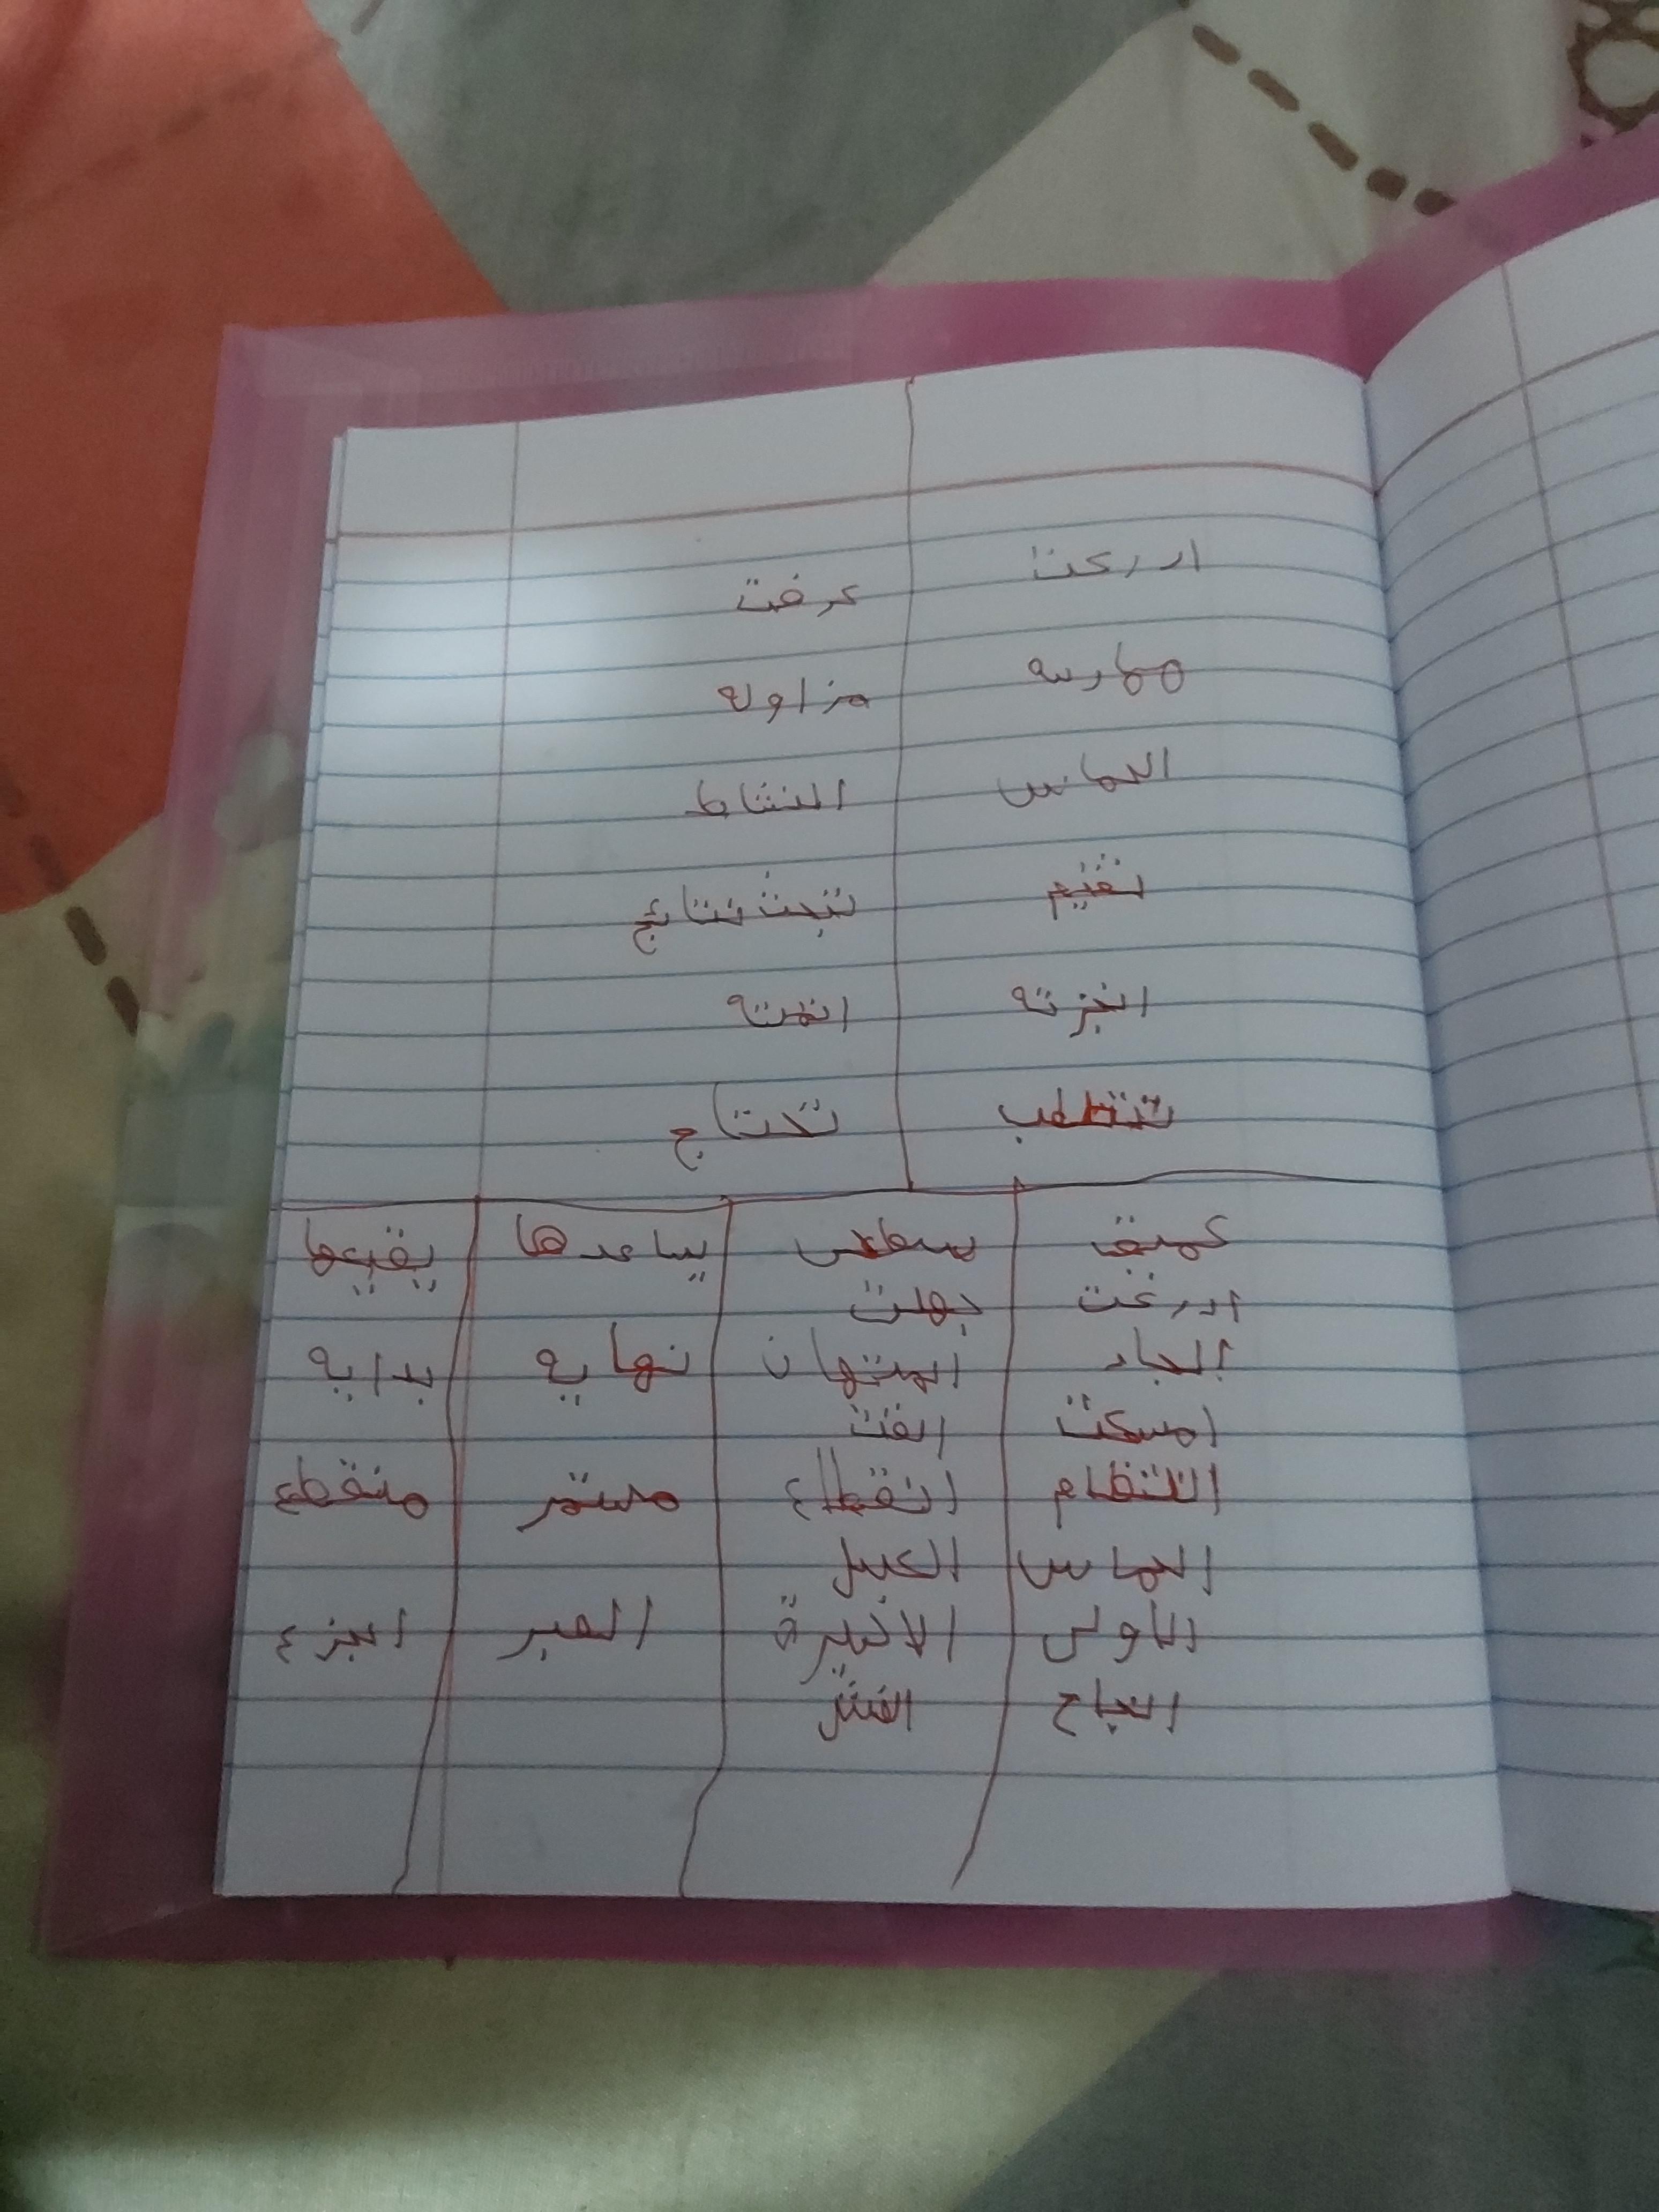 ادركت عرفت
ممارسه مزاوله
الحماس النشاط
تقيم تبحث نتائج
انجزته اتمته
تتطلب تحتاج
عميق سطحي يساعدها يقيعها
ادركت جهلت
الجاد المتهاون نهايه بدايه
امسكت الفت
النتظام انقطاع مستمر منقطع
الحماس الكسل
الاولى الاخيرة الصبر الجزع
النجاح الفشل